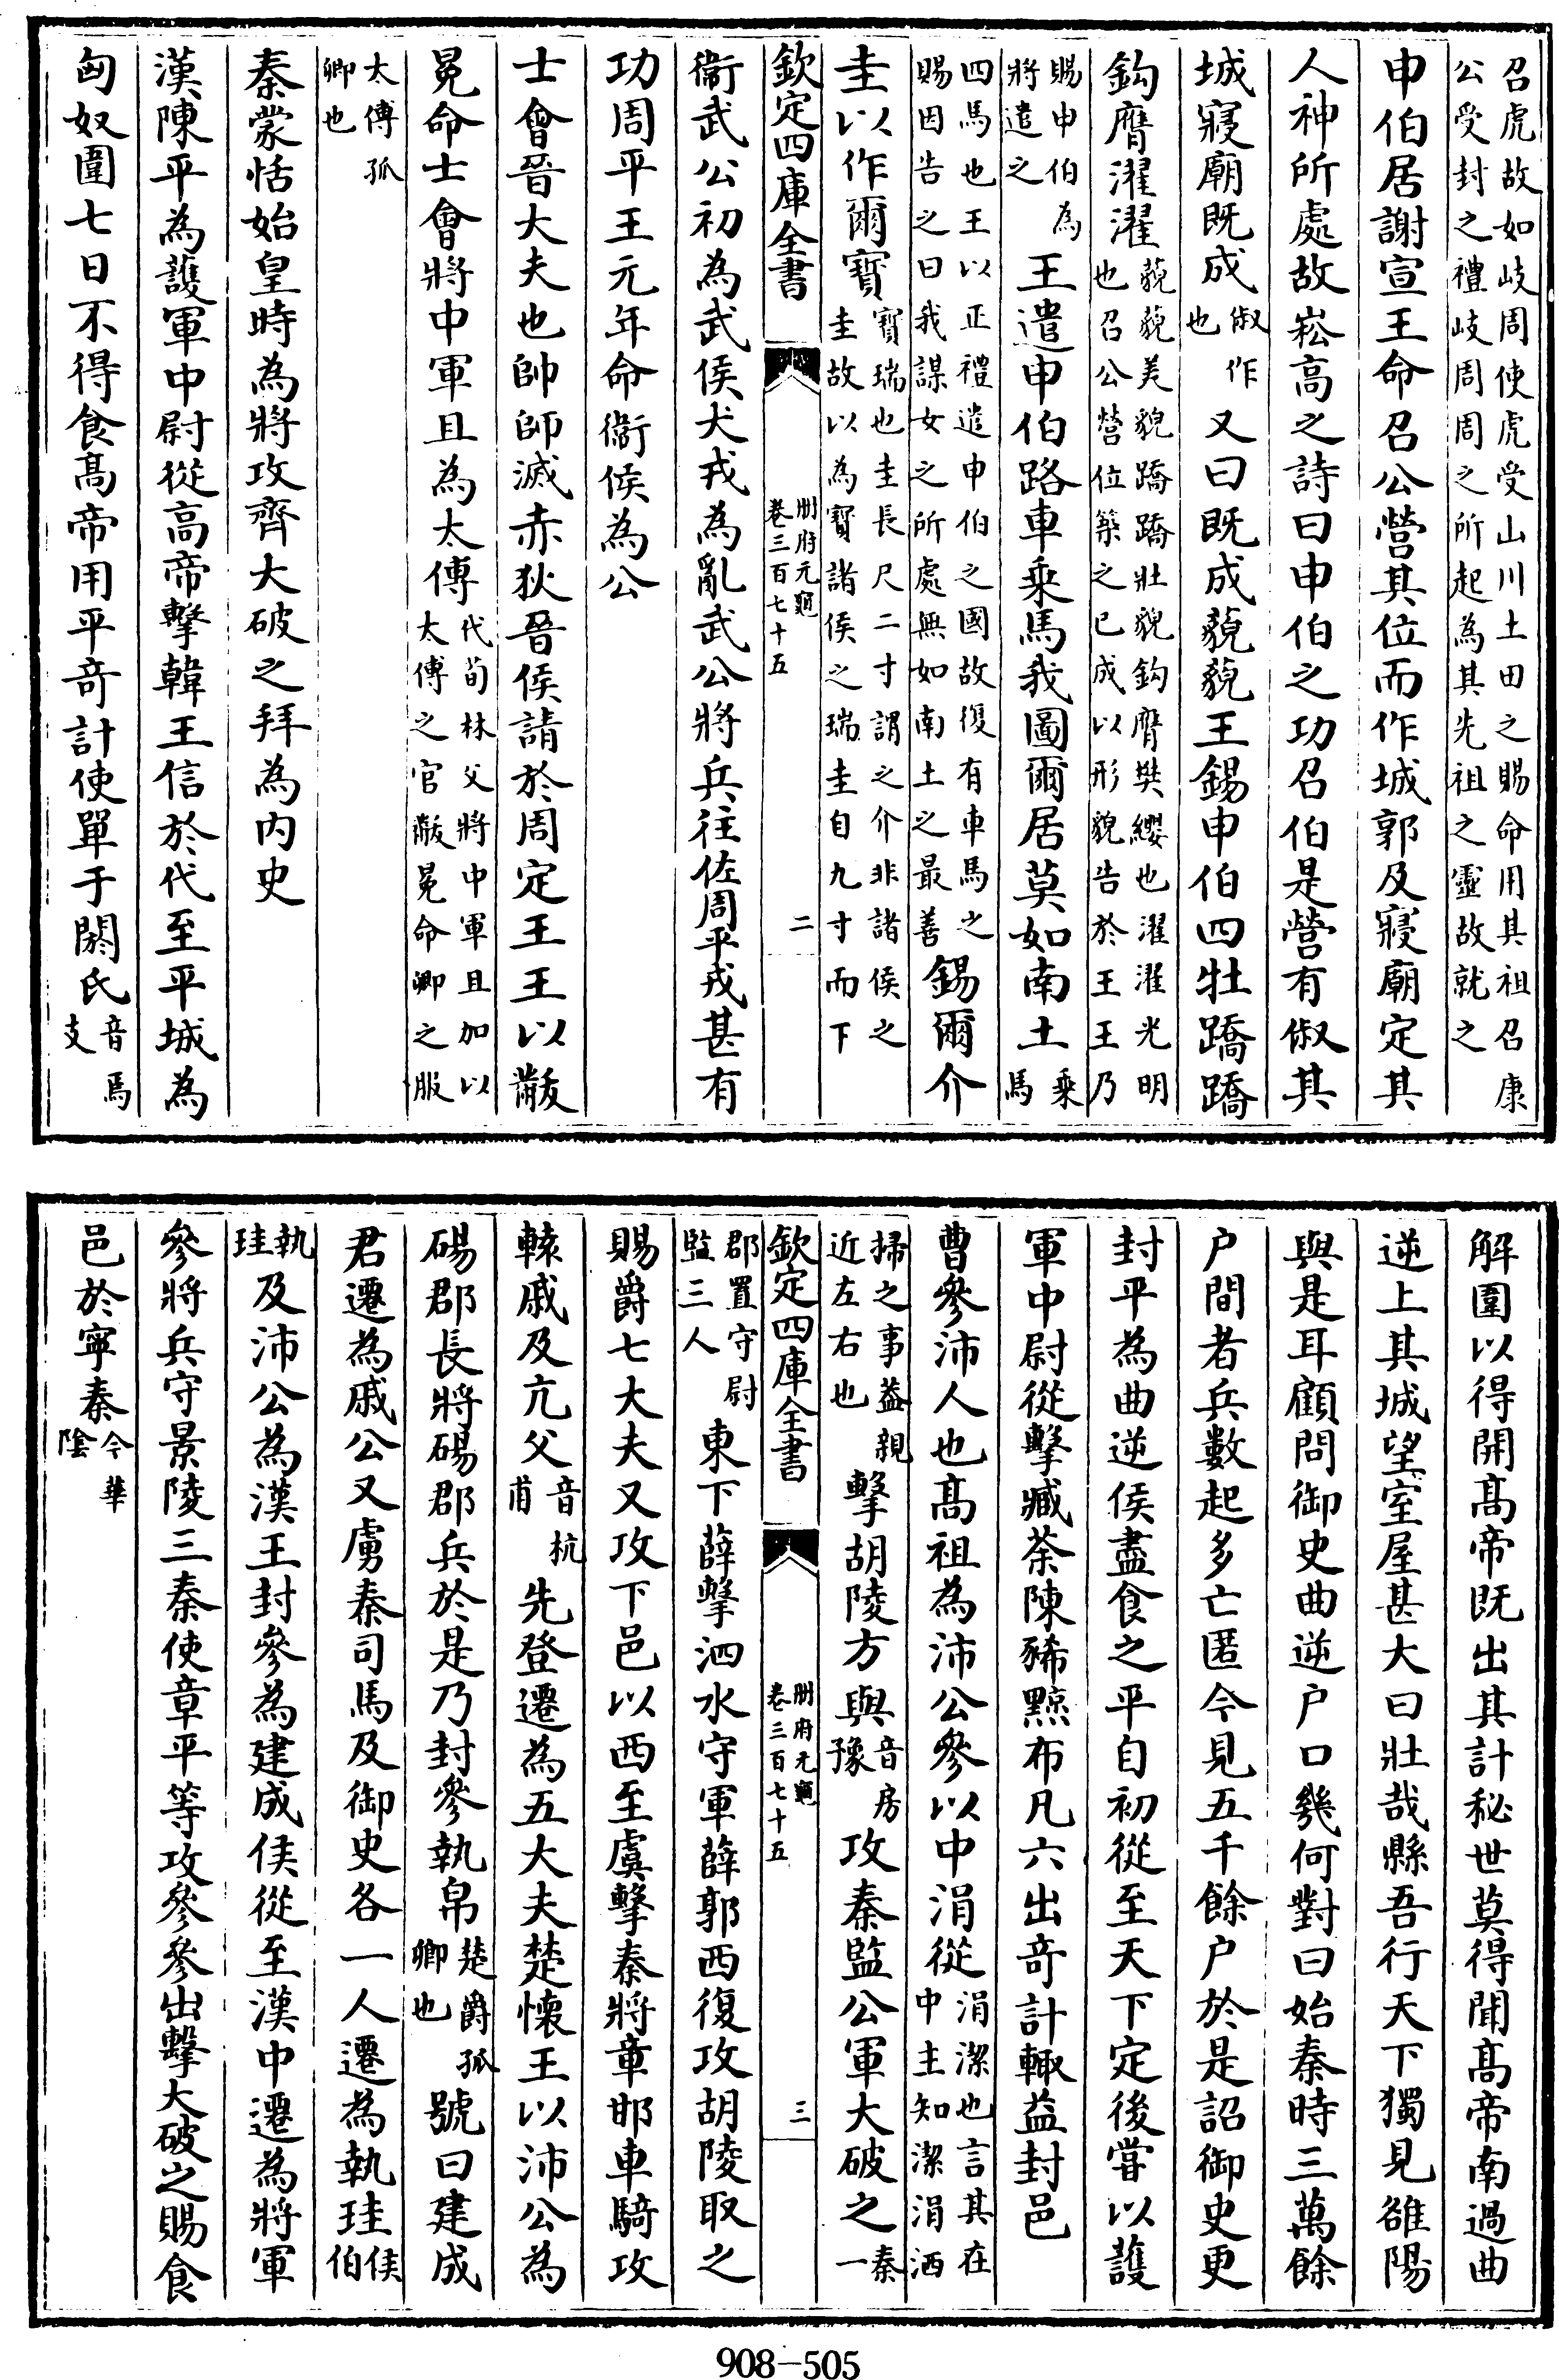 召虎故如岐周使虎受山川土田之賜命用其祖召康
公受封之禮岐周周之所起為其先祖之靈故就之
申伯居謝宣王命召公營其位而作城郭及寢廟定其
人神所處故崧高之詩曰申伯之功召伯是營有俶其
城寢廟既成俶作也又曰既成藐藐王錫申伯四牡蹻蹻
鈎膺濯濯藐藐美貌蹻蹻壯貌鈎膺樊纓也濯濯光明也召公營位築之已成以形貌告於王王乃
賜申伯為將遣之王遣申伯路車乘馬我圖爾居莫如南土乘馬
四馬也王以正禮遣申伯之國故復有車馬之賜因告之曰我謀女之所處無如南土之最善錫爾介
圭以作爾寶寶瑞也圭長尺二寸謂之介非諸侯之圭故以為寶諸侯之瑞圭自九寸而下
欽定四庫全書 冊府元龜 卷三百七十五 二
衛武公初為武侯犬戎為亂武公將兵往佐周平戎甚有
功周平王元年命衛侯為公
士會晉大夫也帥師滅赤狄晉侯請於周定王王以黻
冕命士會將中軍且為太傅代荀林父將中軍且加以太傅之官黻冕命卿之服
太傅孤卿也
秦蒙恬始皇時為將攻齊大破之拜為内史
漢陳平為護軍中尉從高帝擊韓王信於代至平城為
匈奴圍七日不得食髙帝用平奇計使單于閼氏音焉支
解圍以得開髙帝既出其計秘世莫得聞髙帝南過曲
逆上其城望室屋甚大曰壯哉縣吾行天下獨見雒陽
與是耳顧問御史曲逆户口幾何對曰始秦時三萬餘
户間者兵數起多亡匿今見五千餘户於是詔御史更
封平為曲逆侯盡食之平自初從至天下定後嘗以護
軍中尉從擊臧荼陳豨黥布凡六出奇計輙益封邑
曹參沛人也髙祖為沛公參以中涓從涓潔也言其在中主知潔涓洒
掃之事葢親近左右也擊胡陵方與音房豫攻秦監公軍大破之秦一
欽定四庫全書 冊府元龜 卷三百七十五 三
郡置守尉監三人東下薛擊泗水守軍薛郭西復攻胡陵取之
賜爵七大夫又攻下邑以西至虞擊秦將章邯車騎攻
轅戚及亢父音杭甫先登遷為五大夫楚懷王以沛公為
碭郡長將碭郡兵於是乃封參執帛楚爵孤卿也號曰建成
君遷為戚公又虜秦司馬及御史各一人遷為執珪侯伯
執珪及沛公為漢王封參為建成侯從至漢中遷為將軍
參將兵守景陵三秦使章平等攻參參出擊大破之賜食
邑於寧秦今華陰
908－505